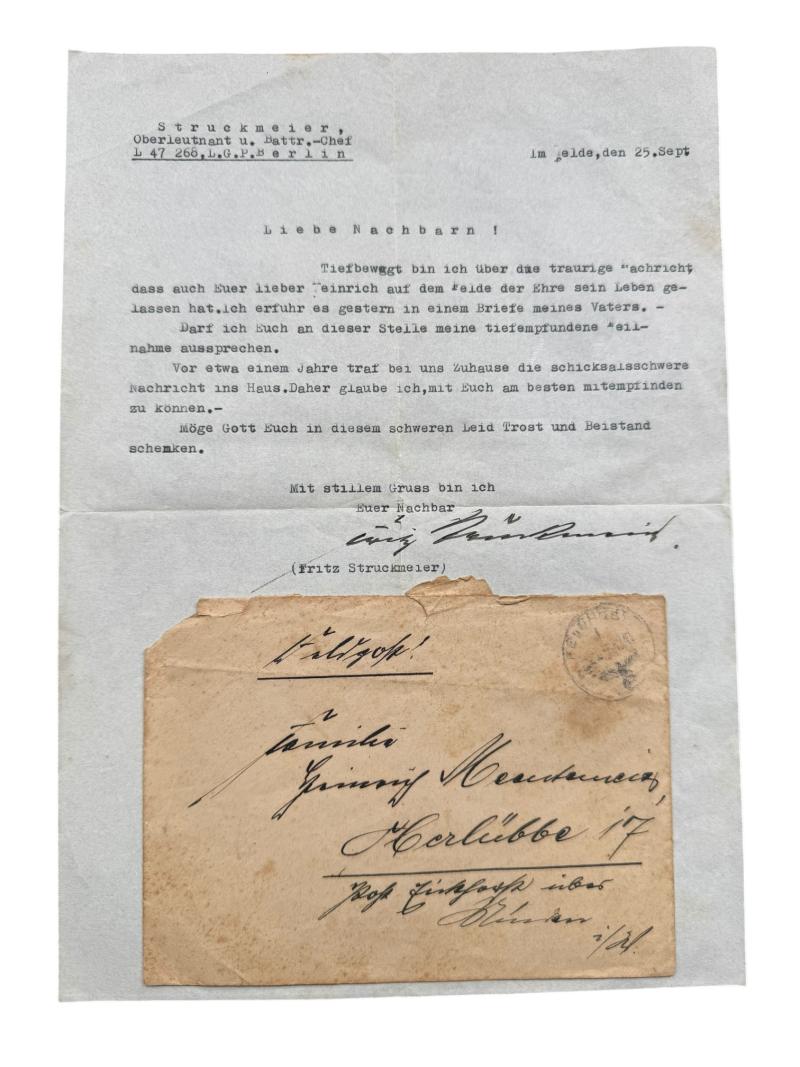 Struckmeier,
Oberleutnant u. Battr.-Chef
L 47 266,L.G.P.Berlin
im Felde,den 25.Sept
Liebe Nachbarn !
Tiefbewegt bin ich über die traurige Nachricht,
dass auch Euer lieber Heinrich auf dem Felde der Ehre sein Leben ge-
lassen hat.Ich erfuhr es gestern in einem Briefe meines Vaters. -
Darf ich Euch an dieser Stelle meine tiefempfundene Teil-
nahme aussprechen.
Vor etwa einem Jahre traf bei uns Zuhause die schicksalsschwere
Nachricht ins Haus.Daher glaube ich,mit Euch am besten mitempfinden
zu können.-
Möge Gott Euch in diesem schweren Leid Trost und Beistand
schenken.
Mit stillem Gruss bin ich
Euer Nachbar
Fritz Struckmeier.
(Fritz Struckmeier)
Feldpost!
Familie
Heinrich
Horlübbe 17
Post Eickhorst über
Minden
i/W.